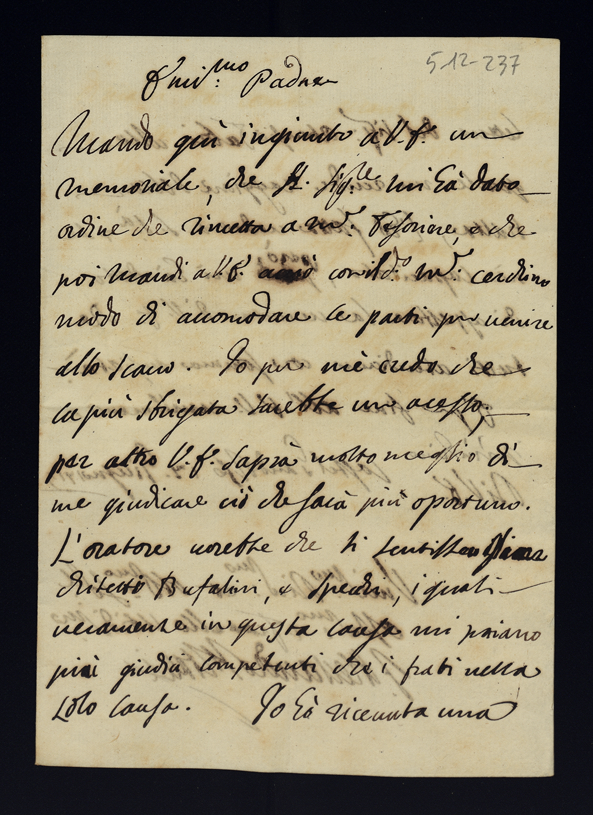 5-12-237
Emi.mo Padre
Mando quì ingiunto a V.E. un
memoriale, che S. Sig.re mi hà dato
ordine che rimetta a m.r Tesoriere, e che
poi mandi a V.E. acciò con il d.o m.r cerchino
modo di accomodare le parti per venire
allo scavo. Io per mè credo che
la più sbrigata sarebbe un acesso,
per altro V.E. saprà molto meglio di
me giudicare ciò che sarà più oportuno.
L'oratore vorebbe che si sentissero
chitetti Bufalini, e Specchi, i quali
veramente in questa causa mi paiano
più giudici competenti che i frati nella
loro causa. Io hà ricevuta una